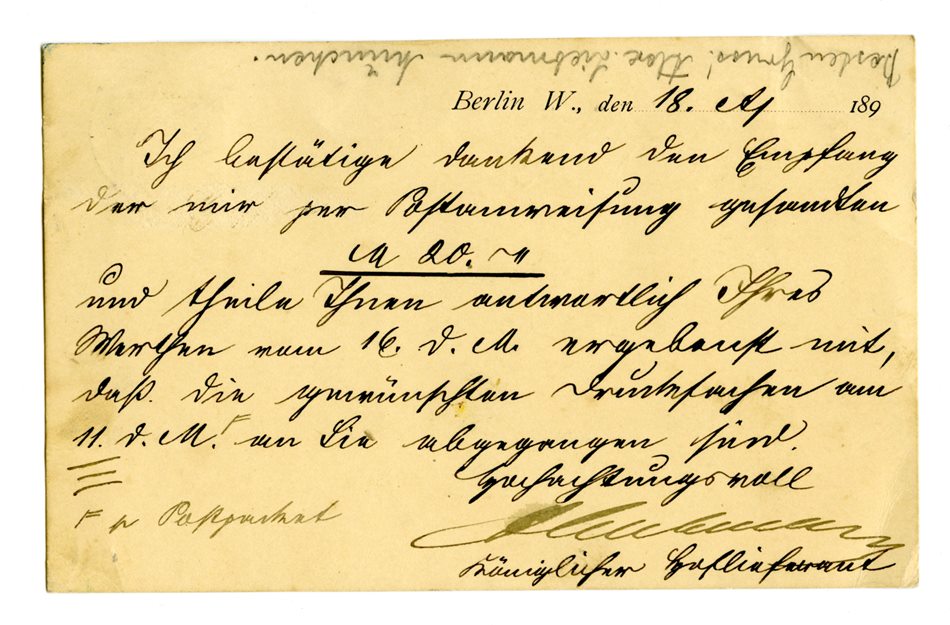 Besten Gruss! Alex. Liebmann München.
Berlin W., den 18. Ap 189
Ich bestätige dankend den Empfang
der mir per Postanweisung gesandten
M 20.–"
und theile Ihnen antwortlich Ihres
Werthen vom 16. d. M. ergebenst mit,
daß die gewünschten Drucksachen am
11. d. M. F an Sie abgegangen sind.
Hochachtungsvoll
Königlicher Hoflieferant
F p Postpacket